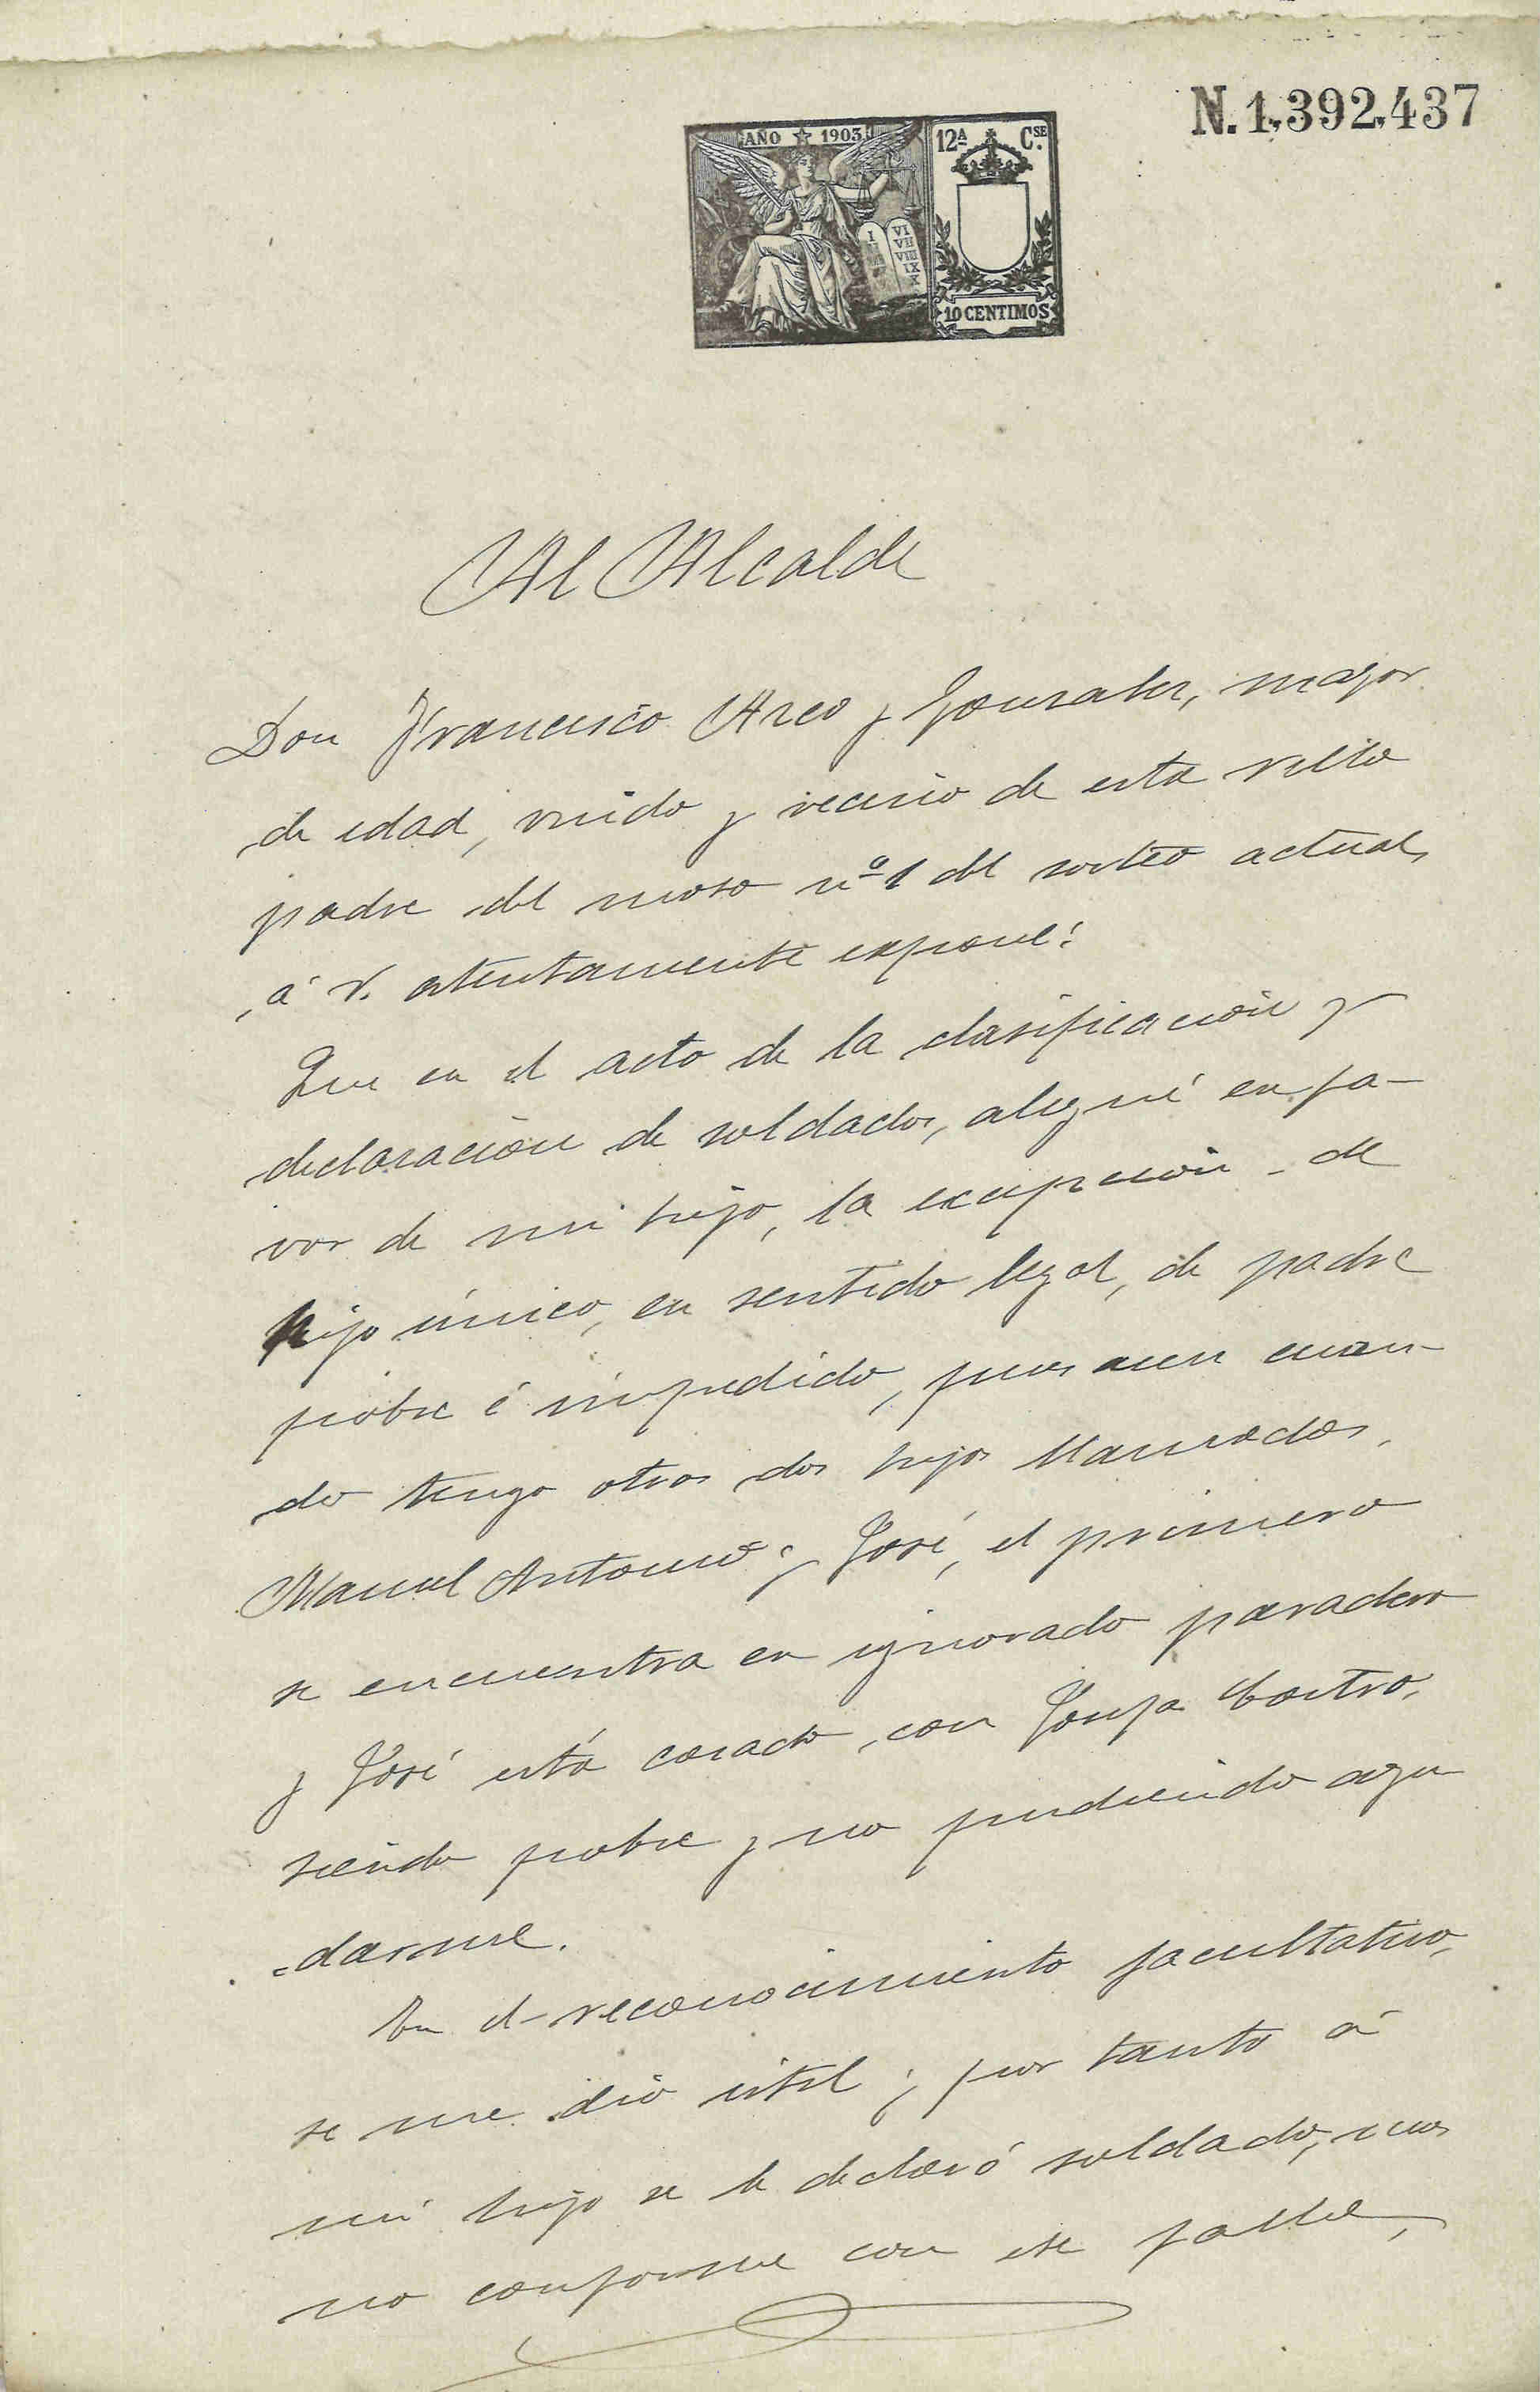 N. 1,392,437
AÑO 1903
12ª Cse.
I VI
VII
VIII
IX
X
10 CENTIMOS
Al Alcalde
Don Francisco Arco y Gonzalez, mayor
de edad, viudo y vecino de esta villa
padre del moso nº 1 del sorteo actual,
á V. atentamente expone:
Que en el acto de la clasificación y
declaración de soldados, alegué en fa-
vor de mi hijo, la excepción de
hijo único, en sentido legal, de padre
pobre é impedido, pues aun cuan-
do tengo otros dos hijos llamados,
Manuel Antonio y José, el primero
se encuentra en ignorado paradero
y José está casado, con Josefa Castro,
siendo pobre y no pudiendo ayu
-darme.
En el reconocimiento facultativo,
se me dió útil; por tanto á
mi hijo se le declaró soldado, mas
no conforme con ese fallo,